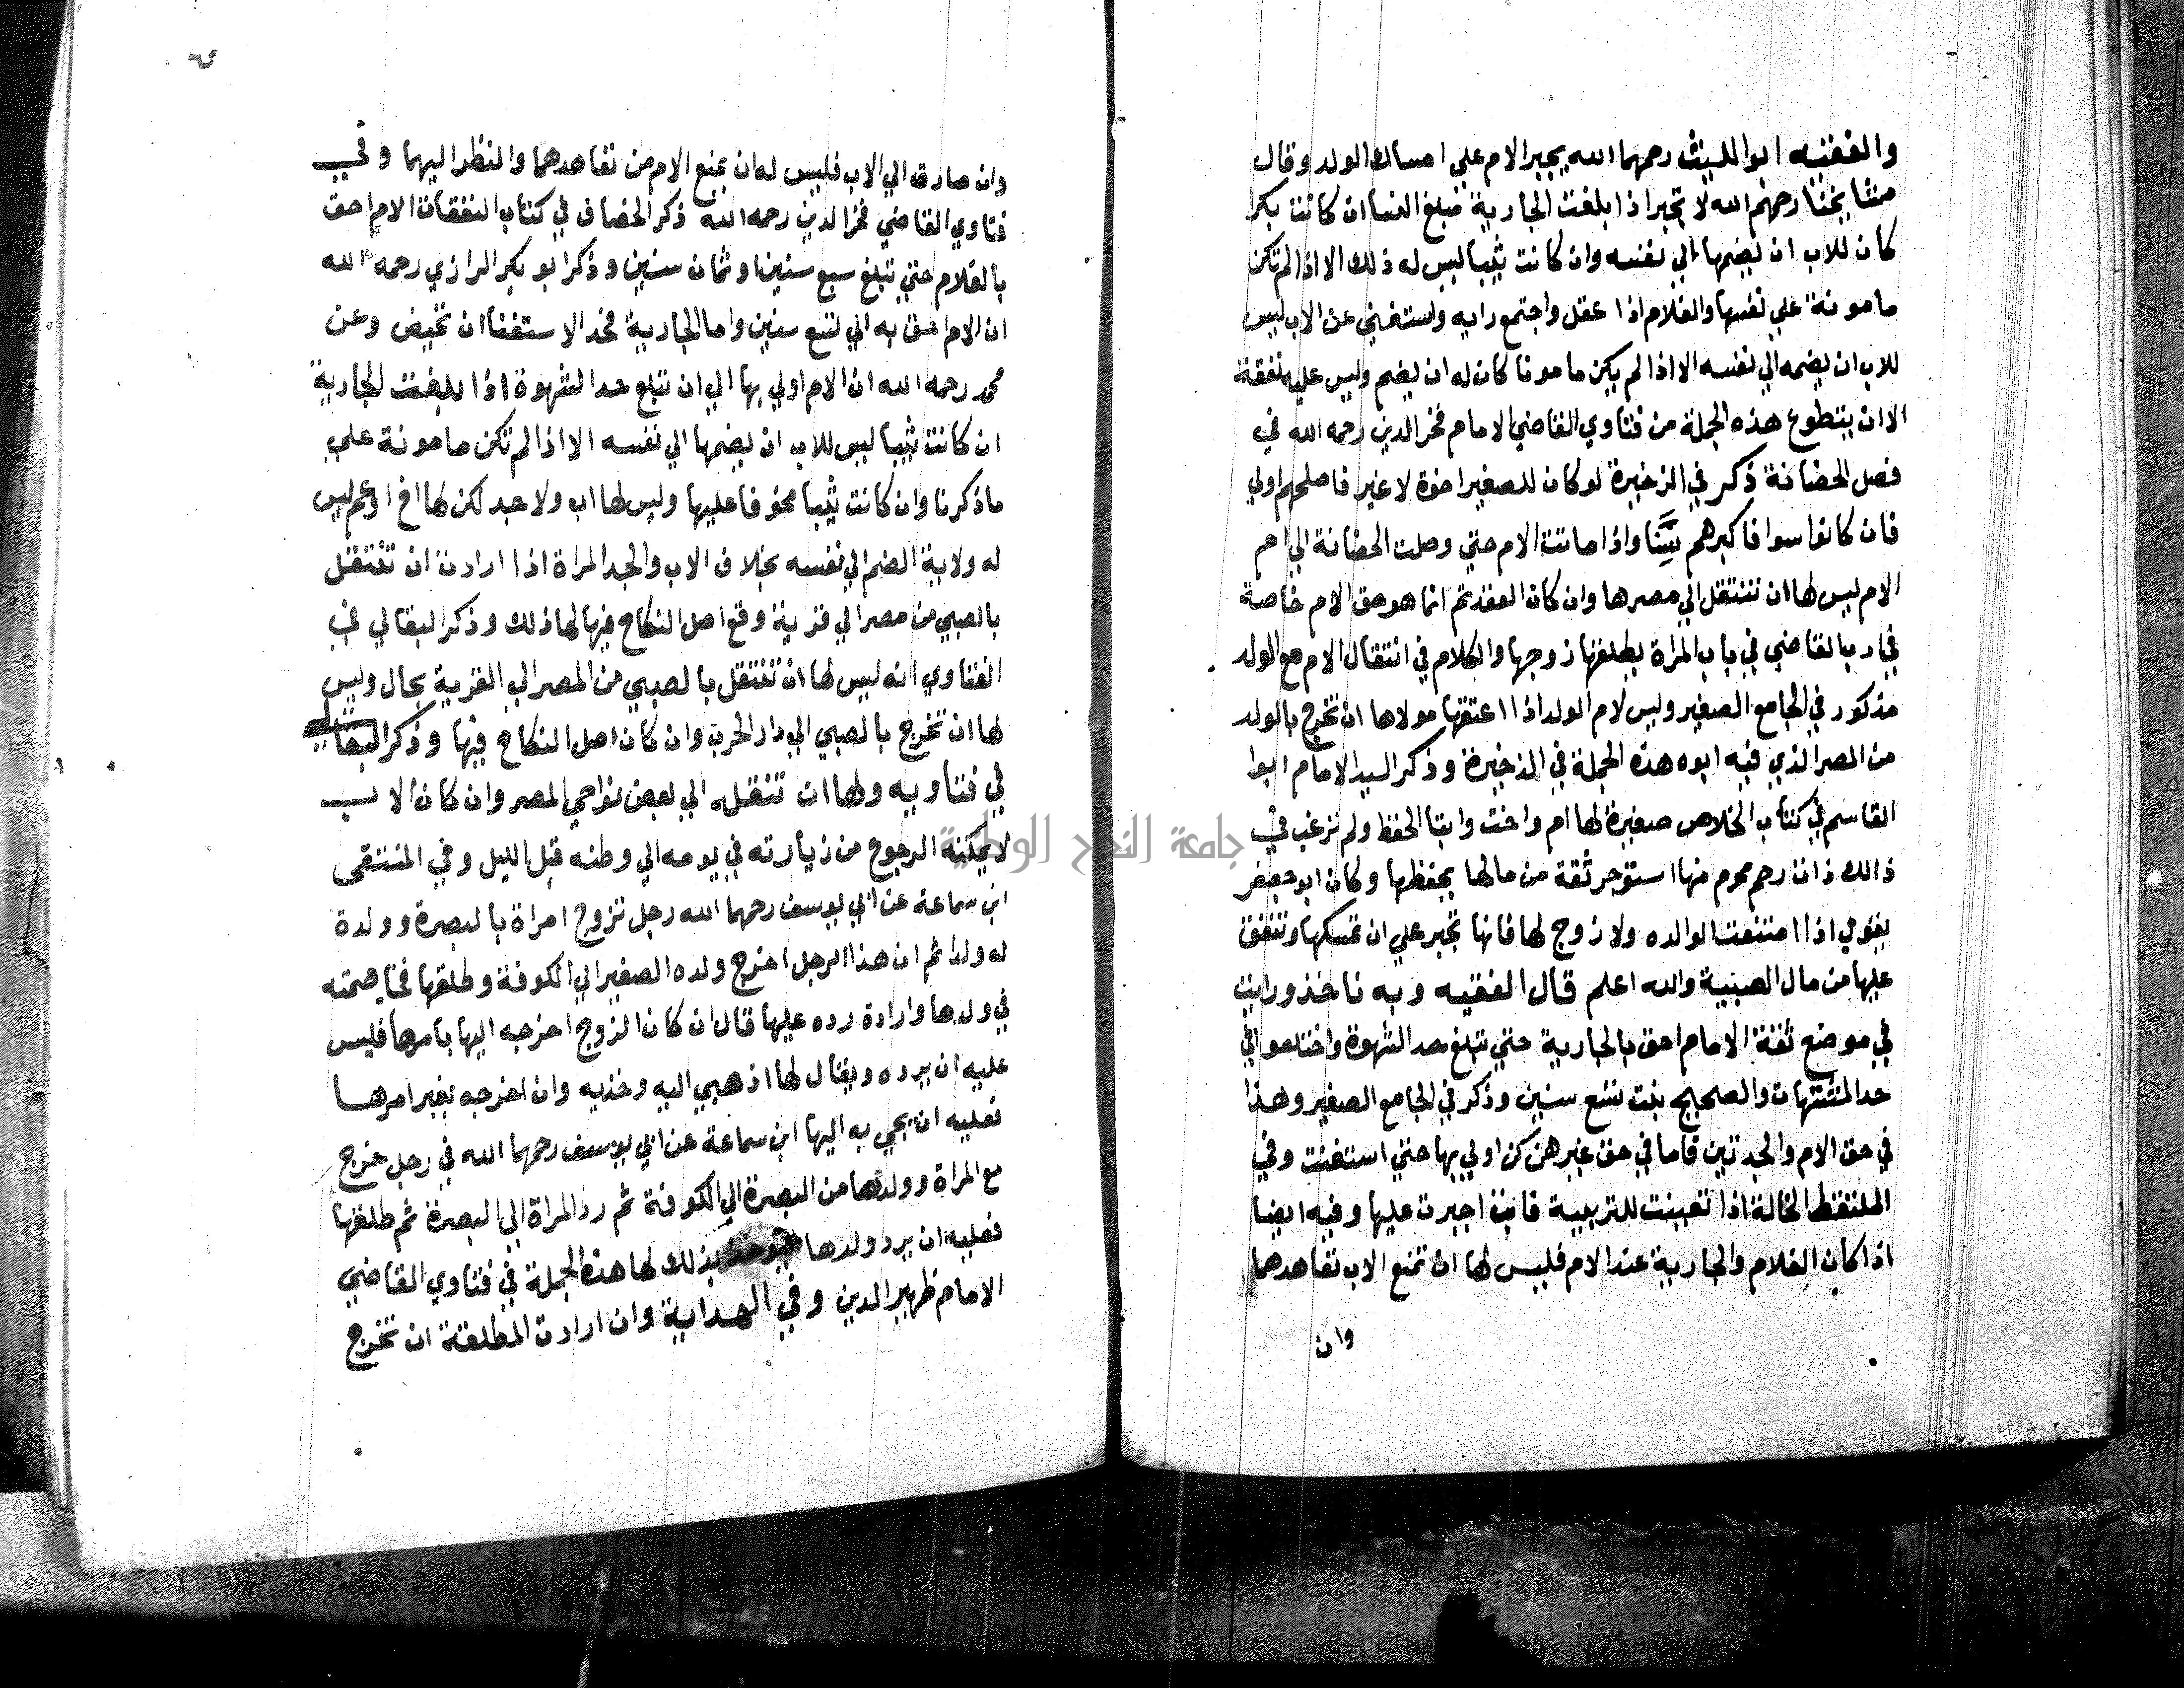 والفقيه ابوا لليث رحمهما الله يجبر الام علي امساك الولد وقال
مشايخنا رحمهم الله لا تجبر اذا بلغت الجارية مبلغ النسا ان كانت بكرا
كان للاب ان يضمها الي نفسه وان كانت ثيبا ليس له ذلك الا اذا لم تكن
مامونة علي نفسها والغلام اذا عقل واجتمع رايه واستغني عن الاب ليس
للاب ان يضمه الي نفسه الا اذا لم يكن مامونا كان له ان يضم وليس عليه نفقة
الا ان يتطوع هذه الجملة من فتاوي القاضي الامام فخر الدين رحمه الله في
فصل الحضانة ذكر في الذخيرة لو كان للصغير اخوة لا غير فاصلحهم اولي
فان كانوا سوا فاكبرهم سِنًّا واذا ماتت الام حتي وصلت الحضانة الي ام
الام ليس لها ان تنتقل الي مصرها وان كان العقد ثم انما هو حق الام خاصة
في ادب القاضي في باب المراة يطلقها زوجها والكلام في انتقال الام مع الولد
مذكور في الجامع الصغير وليس لام الولد اذا اعتقها مولاها ان تخرج بالولد
من المصر الذي فيه ابوه هذه الجملة في الذخيرة وذكر السيد الامام ابوا
القاسم في كتاب الخلاص صغيرة لها ام واخت وابتا الحفظ ولم ترغب في
ذالك ذات رحم محرم منها استؤجر ثقة من مالها يحفظها وكان ابو جعفر
يفتي اذا امتنعت الوالده ولا زوج لها فانها تجبر علي ان تمسكها وتنفق
عليها من مال الصبية والله اعلم قال الفقيه وبه ناخذ ورايت
في موضع ثقة الام احق بالجارية حتي تبلغ حد الشهوة واختلفوا في
حد المشتهات والصحيح بنت تسع سنين وذكر في الجامع الصغير وهذا
في حق الام والجدتين فاما في حق غيرهن كن اولي بها حتي استغنت وفي
الملتقط الخالة اذا تعينت للتربية فابت اجبرت عليها وفيه ايضا
اذا كان الغلام والجارية عند الام فليس لها ان تمنع الاب تعاهدهما
وان
وان صارت الي الاب فليس له ان يمنع الام من تعاهدهما والنظر اليهما وفي
فتاوي القاضي فخر الدين رحمه الله ذكر الخصاف في كتاب النفقات الام احق
بالغلام حتي يبلغ سبع سنين او ثمان سنين وذكر ابو بكر الرازي رحمه الله
ان الام احق به الي تسع سنين واما الجارية فحد الاستغنا ان تحيض وعن
محمد رحمه الله ان الام اولي بها الي ان تبلغ حد الشهوة اذا بلغت الجارية
ان كانت ثيبا ليس للاب ان يضمها الي نفسه الا اذا لم تكن مامونة علي
ما ذكرنا وان كانت ثيبا مخوفا عليها وليس لها اب ولا جد لكن لها اخ او عم ليس
له ولاية الضم الي نفسه بخلاف الاب والجد المراة اذا ارادت ان تنتقل
بالصبي من مصر الي قرية وقع اصل النكاح فيها لها ذلك وذكر البقالي في
الفتاوي انه ليس لها ان تنتقل بالصبي من المصر الي القرية بحال وليس
لها ان تخرج بالصبي الي دار الحرب وان كان اصل النكاح فيها وذكر البقالي
في فتاويه ولها ان تنقله الي بعض نواحي المصر وان كان الاب
لا يمكنه الرجوع من زيارته في يومه الي وطنه قبل الليل وفي المنتقى
ابن سماعة عن ابي يوسف رحمهما الله رجل تزوج امراة بالبصرة وولدة
له ولدا ثم ان هذا الرجل اخرج ولده الصغير الي الكوفة وطلقها فخاصمته
في ولدها وارادة رده عليها قال ان كان الزوج اخرجه اليها بامرها فليس
عليه ان يرده ويقال لها اذهبي اليه وخذيه وان اخرجه بغير امرها
فعليه ان يجي به اليها ابن سماعة عن ابي يوسف رحمهما الله في رجل خرج
مع المراة وولدها من البصرة الي الكوفة ثم رد المراة الي البصرة ثم طلقها
فعليه ان يرد ولدها فيوخذ بذلك لها هذه الجملة في فتاوي القاضي
الامام ظهير الدين وفي الهداية وان ارادت المطلقة ان تخرج
جامعة النجاح الوطنية